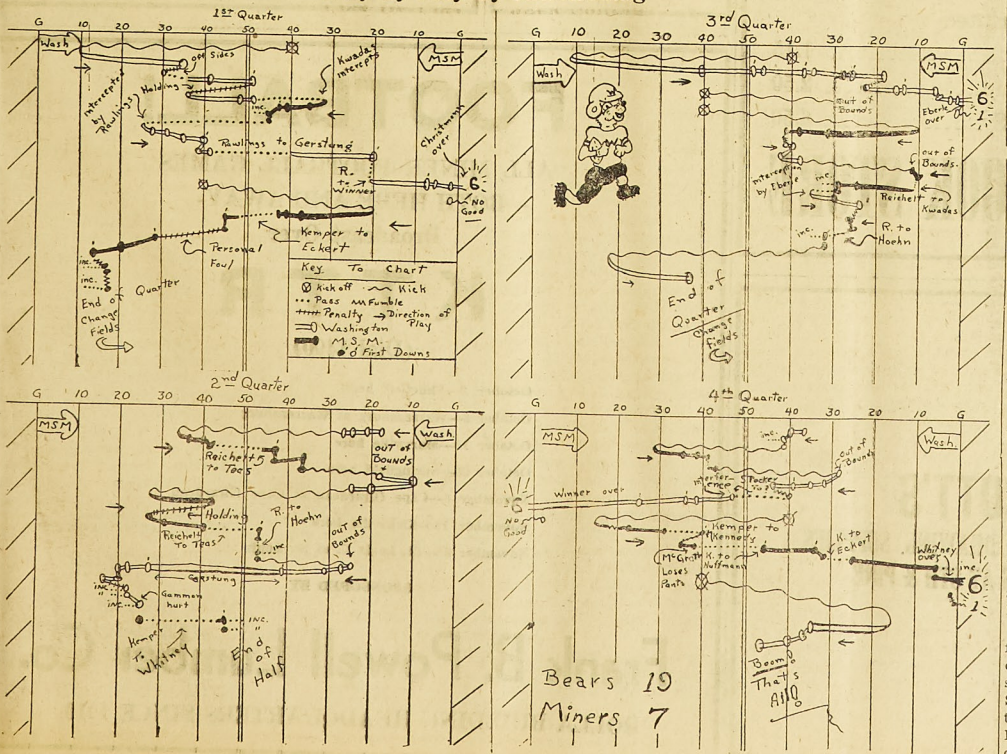 1st Quarter
G 10 20 30 40 50 40 30 20 10 G
Wash
MSM
off Sides
Holding
intercepted by Rawlings
Kwadas Intercepts
inc.
Christman over
Rawlings to Gerstung
R. to Winner
6
No Good
Kemper to Eckert
Personal Foul
inc.
inc.
End of Quarter
Change Fields
Key To Chart
Kick off Kick
Pass Fumble
Penalty Direction of Play
Washington
M.S.M.
First Downs
3rd Quarter
G 10 20 30 40 50 40 30 20 10 G
Wash
MSM
out of Bounds
Eberle over
6
1
out of Bounds.
interception by Eberle
inc.
Reichelt to Kwadas
R. to Hoehn
inc.
End of Quarter
Change Fields
2nd Quarter
G 10 20 30 40 50 40 30 20 10 G
MSM
Wash.
Reichelt to Teas
5
ouT of BounDs
Holding
R. to Hoehn
Reichelt To Teas
inc
ouT of Bounds
Gerstung
inc.
"
inc.
Gammon hurt
Kemper To Whitney
INC.
"
End of Half
4th Quarter
G 10 20 30 40 50 40 30 20 10 G
MSM
Wash.
inc.
out of Bounds
Winner over
6
No Good
Kemper to Kennedy
K. to Eckert
McGrath Loses Pants
K. to Huffman
Whitney over
inc.
6
1
Boom!
That's
All!!
Bears 19
Miners 7